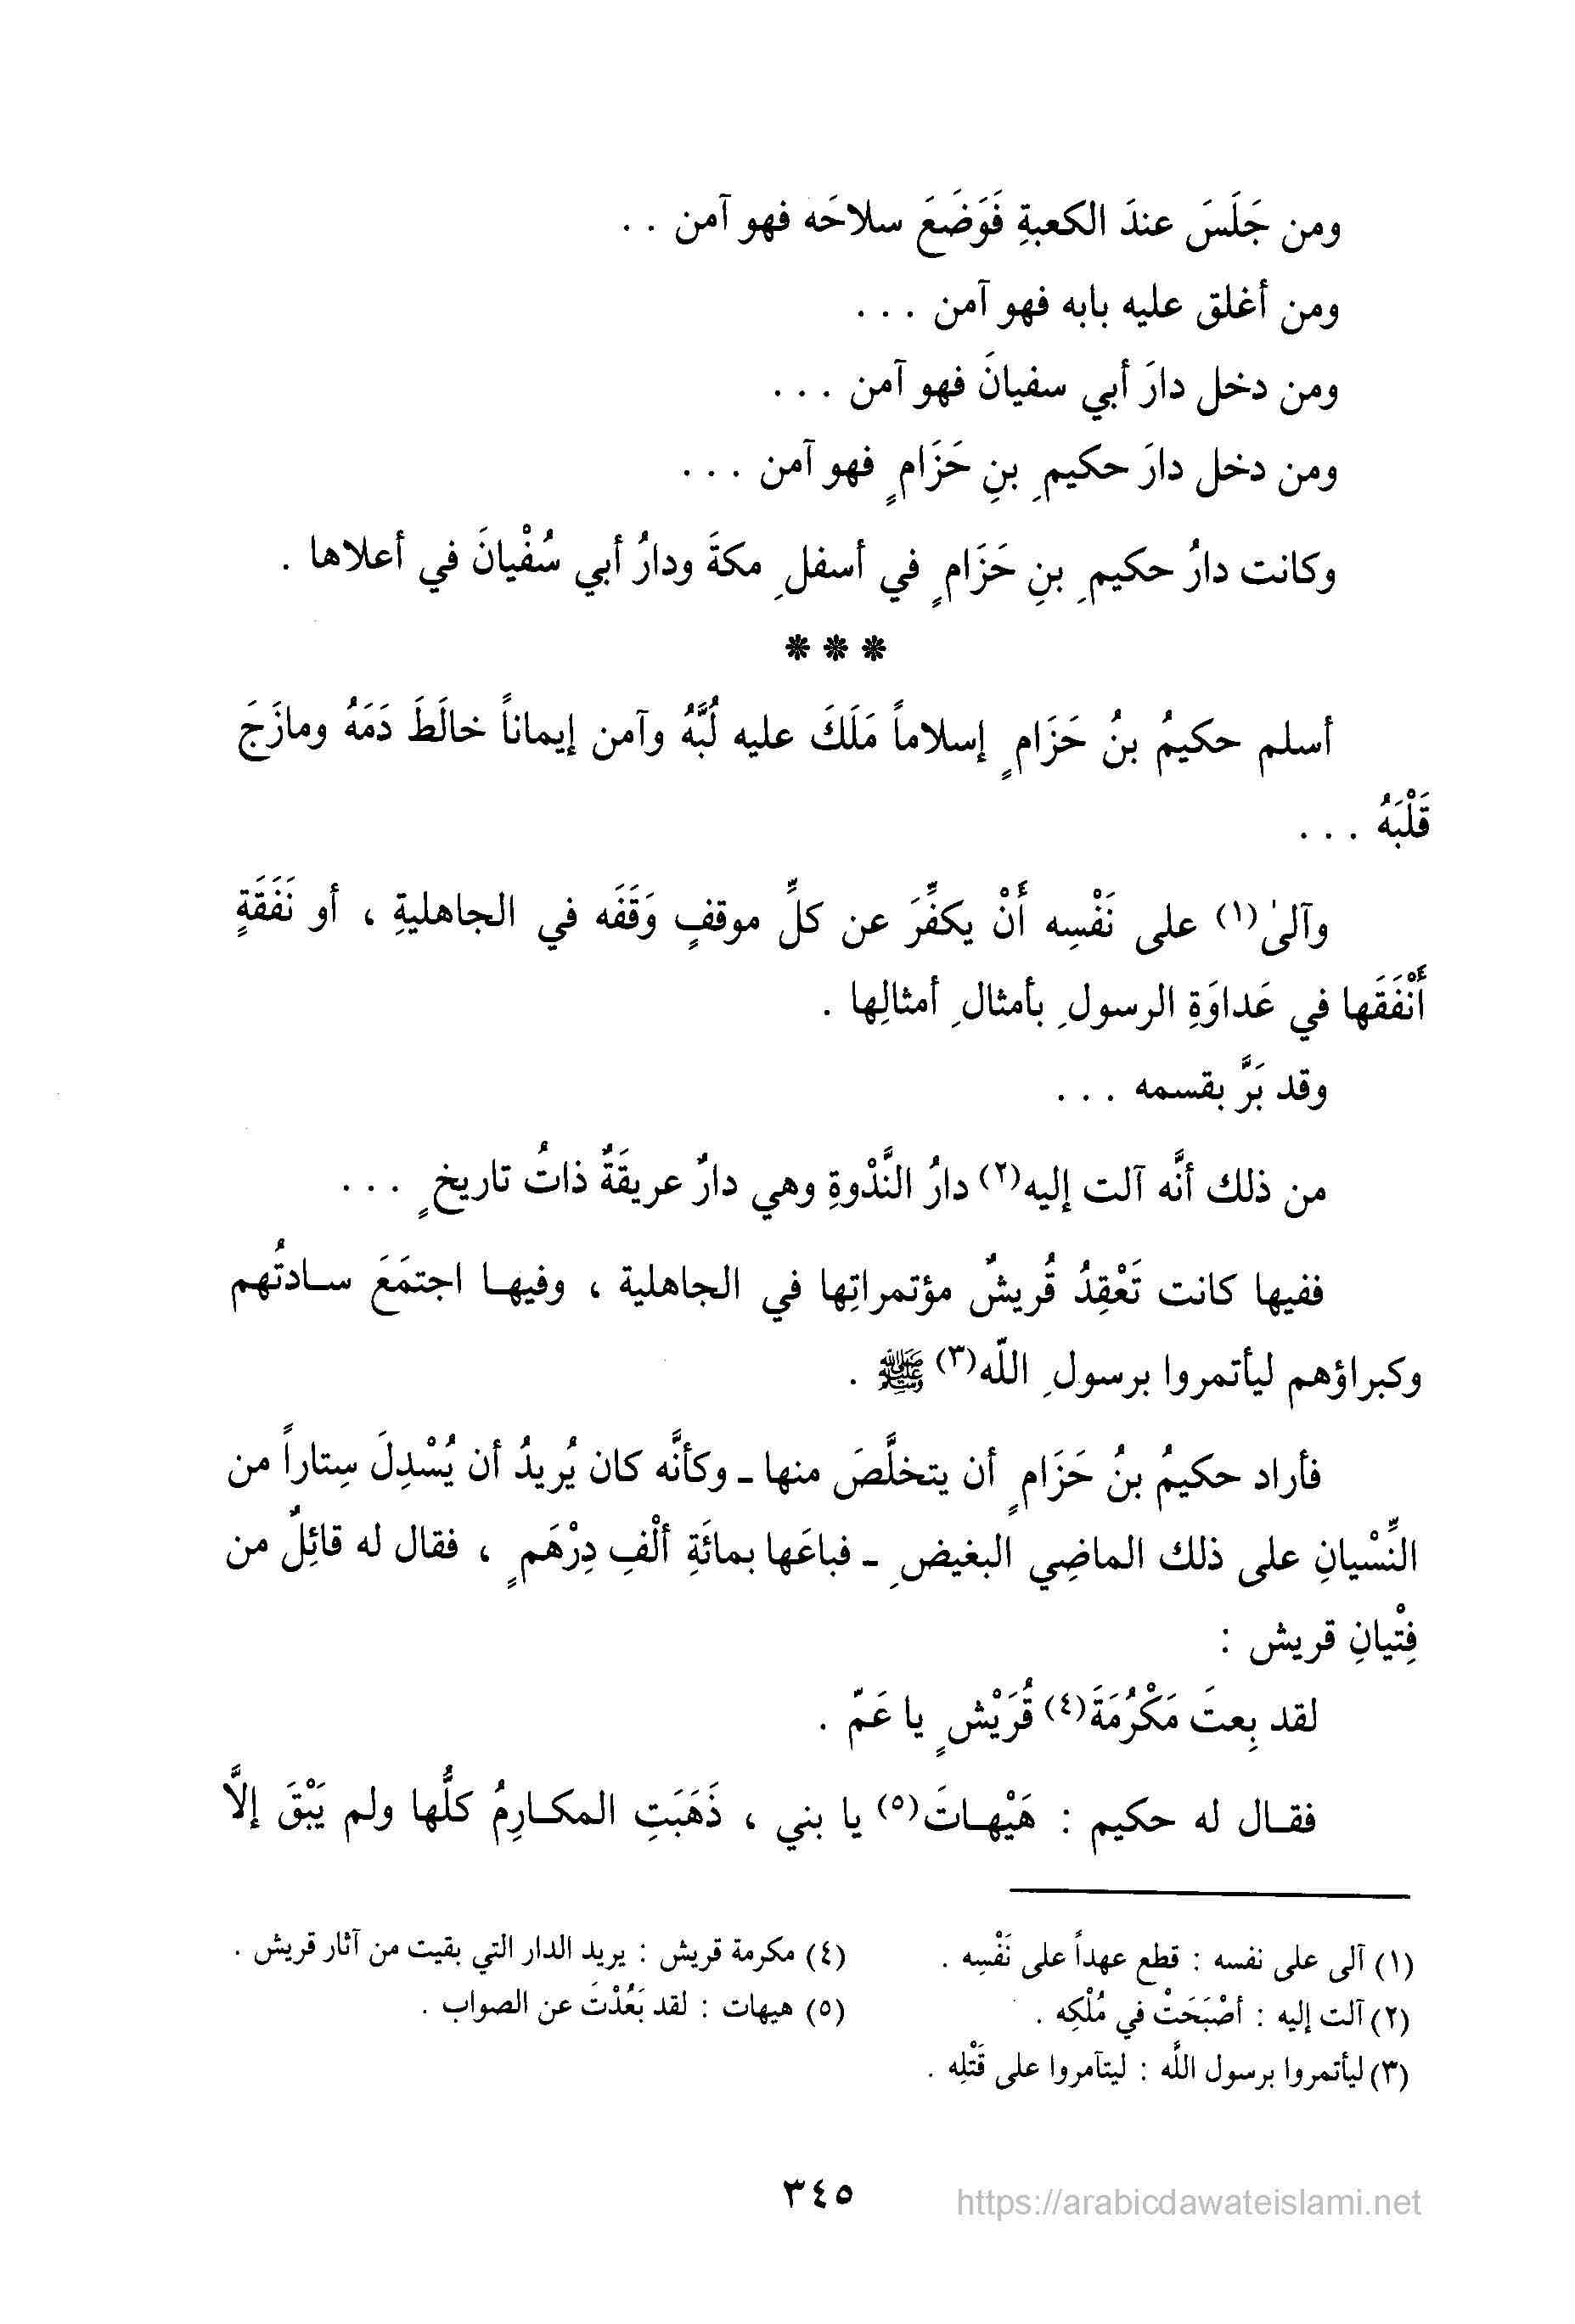 ومن جَلَسَ عندَ الكعبةِ فَوَضَعَ سلاحَه فهو آمن . .
ومن أغلق عليه بابه فهو آمن . . .
ومن دخل دارَ أبي سفيانَ فهو آمن . . .
ومن دخل دارَ حكيمِ بنِ حَزَامٍ فهو آمن . . .
وكانت دارُ حكيمِ بنِ حَزَامٍ في أسفلِ مكةَ ودارُ أبي سُفْيانَ في أعلاها .
* * *
أسلم حكيمُ بنُ حَزَامٍ إسلاماً مَلَكَ عليه لُبَّهُ وآمن إيماناً خالَطَ دَمَهُ ومازَجَ
قَلْبَهُ . . .
وآلىٰ(١) على نَفْسِه أَنْ يكفِّرَ عن كلِّ موقفٍ وَقَفَه في الجاهليةِ ، أو نَفَقَةٍ
أَنْفَقَها في عَداوَةِ الرسولِ بأمثالِ أمثالِها .
وقد بَرَّ بقسمه . . .
من ذلك أنَّه آلت إليه(٢) دارُ النَّدْوةِ وهي دارٌ عريقَةٌ ذاتُ تاريخٍ . . .
ففيها كانت تَعْقِدُ قُريشٌ مؤتمراتِها في الجاهلية ، وفيهـا اجتمَعَ سـادتُهم
وكبراؤهم ليأتمروا برسولِ اللّه(٣) ﷺ .
فأراد حكيمُ بنُ حَزَامٍ أن يتخلَّصَ منها ـ وكأنَّه كان يُريدُ أن يُسْدِلَ سِتاراً من
النِّسْيانِ على ذلك الماضِي البغيضِ ـ فباعَها بمائَةِ ألْفِ دِرْهَمٍ ، فقال له قائِلٌ من
فِتْيانِ قريش :
لقد بِعتَ مَكْرُمَةَ(٤) قُرَيْشٍ يا عَمّ .
فقـال له حكيم : هَيْهـاتَ(٥) يا بني ، ذَهَبَتِ المكـارِمُ كلُّها ولم يَبْقَ إلَّا
(١) آلى على نفسه : قطع عهداً على نَفْسِه .
(٢) آلت إليه : أصْبَحَتْ في مُلْكِه .
(٣) ليأتمروا برسول اللَّه : ليتآمروا على قَتْلِه .
(٤) مكرمة قريش : يريد الدار التي بقيت من آثار قريش .
(٥) هيهات : لقد بَعُدْتَ عن الصواب .
٣٤٥
https://arabicdawateislami.net